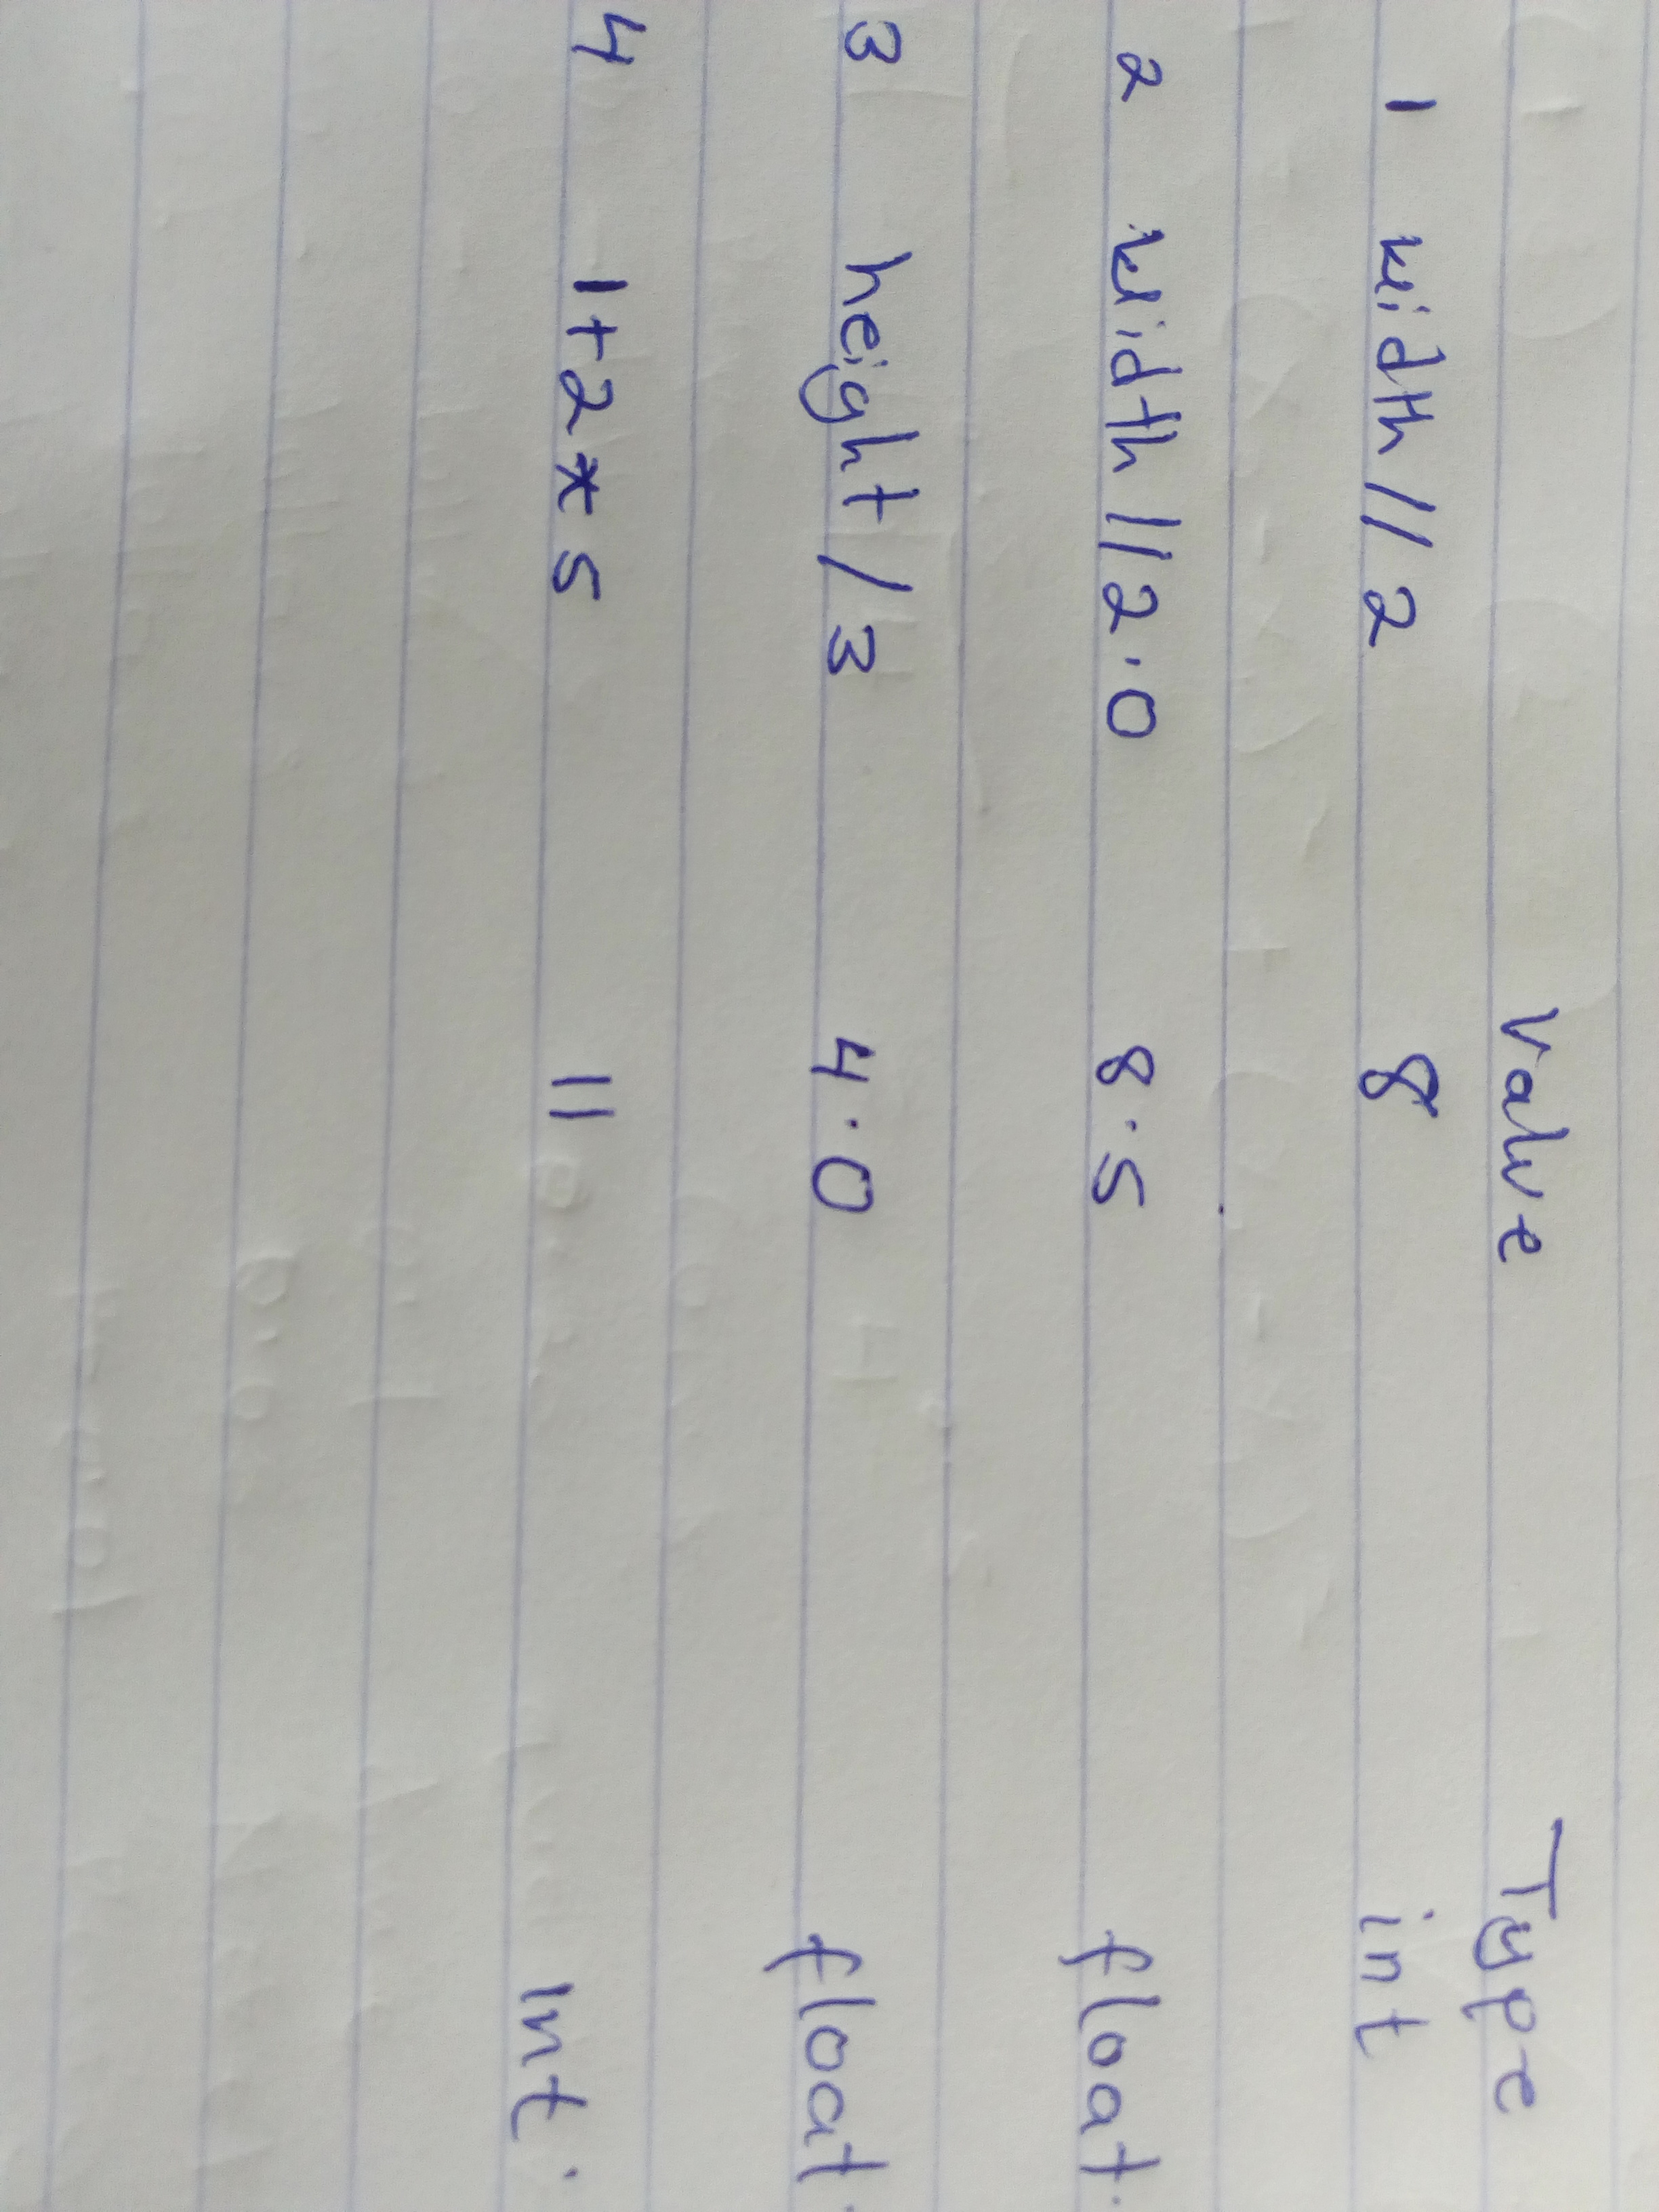 Value Type
1 width // 2 8 int
2 width // 2.0 8.5 float.
3 height / 3 4.0 float
4 1+2 * 5 11 Int